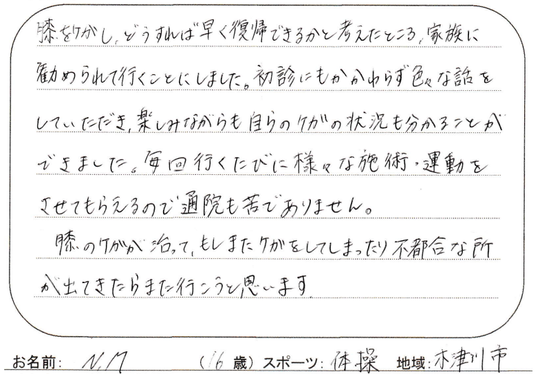 膝をケガし、どうすれば早く復帰できるかと考えたところ、家族に
勧められて行くことにしました。初診にもかかわらず色々な話を
していただき、楽しみながらも自らのケガの状況も分かることが
できました。毎回行くたびに様々な施術・運動を
させてもらえるので通院も苦でありません。
膝のケガが治って、もしまたケガをしてしまったり不都合な所
が出てきたらまた行こうと思います
お名前: N.M (16歳) スポーツ: 体操 地域: 木津川市